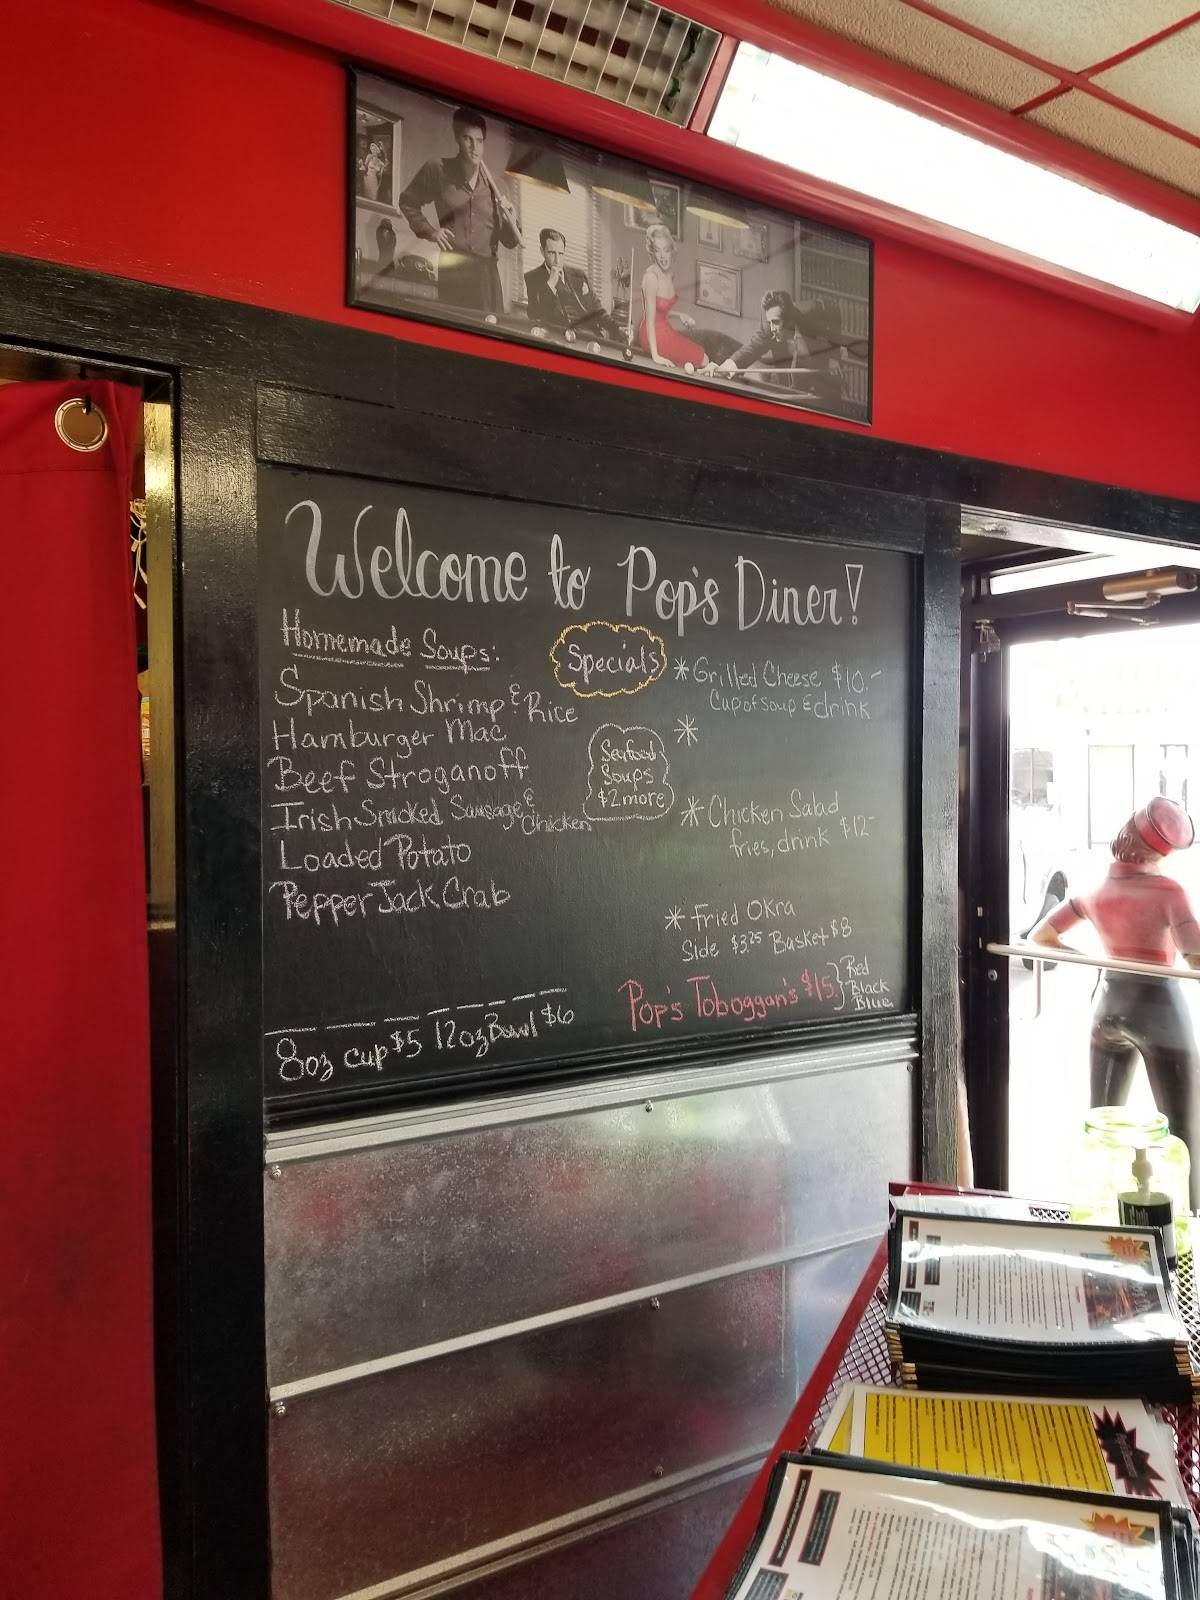 Welcome to Pop's Diner!
Homemade Soups:
Spanish Shrimp & Rice
Hamburger Mac
Beef Stroganoff
Irish Smoked Sausage & Chicken
Loaded Potato
Pepper Jack Crab
8oz cup $5 12oz Bowl $6
Specials
Seafood
Soups
$2 more
* Grilled Cheese $10.-
Cup of soup & drink
*
* Chicken Salad
fries, drink $12-
* Fried Okra
Side $3.25 Basket $8
Pop's Toboggan's $15
Red
Black
Blue